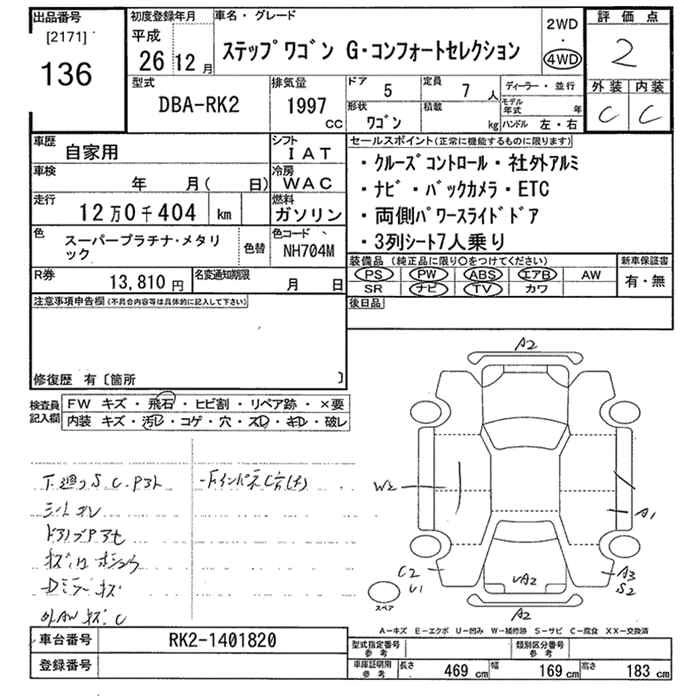 出品番号
[2171]
136
初度登録年月
平成
26 12月
車名・グレード
ステップワゴン G・コンフォートセレクション
2WD
・
4WD
評価点
2
外装 内装
C C
型式
DBA-RK2
排気量
1997
CC
ドア
5
定員
7 人
形状
ワゴン
積載
kg
ディーラー・並行
モデル年式
年
ハンドル 左・右
車歴
自家用
シフト
IAT
車検
年 月( 日)
冷房
WAC
走行
12万0千404 km
燃料
ガソリン
色
スーパープラチナ・メタリ
ック
色替
色コード
NH704M
R券
13,810 円
名変通知期限
月 日
セールスポイント(正常に機能するものに限ります)
・クルーズコントロール・社外アルミ
・ナビ・バックカメラ・ETC
・両側パワースライドドア
・3列シート7人乗り
装備品 (純正品に限り○をつけてください)
PS PW ABS エアB AW
SR ナビ TV カワ
新車保証書
有・無
後日品
注意事項申告欄(不具合内容等は具体的に記入して下さい)
修復歴 有〔箇所 〕
検査員
記入欄
FW キズ・飛石・ヒビ割・リペア跡・×要
内装 キズ・汚れ・コゲ・穴・スレ・キレ・破レ
A2
W2
A1
C2
U1
UA2
A3
S2
A2
スペア
A-キズ E-エクボ U-凹み W-補修跡 S-サビ C-腐食 XX-交換済
車台番号
RK2-1401820
登録番号
型式指定番号
参考
類別区分番号
参考
車庫証明用
参考
長さ
469 cm
幅
169 cm
高さ
183 cm